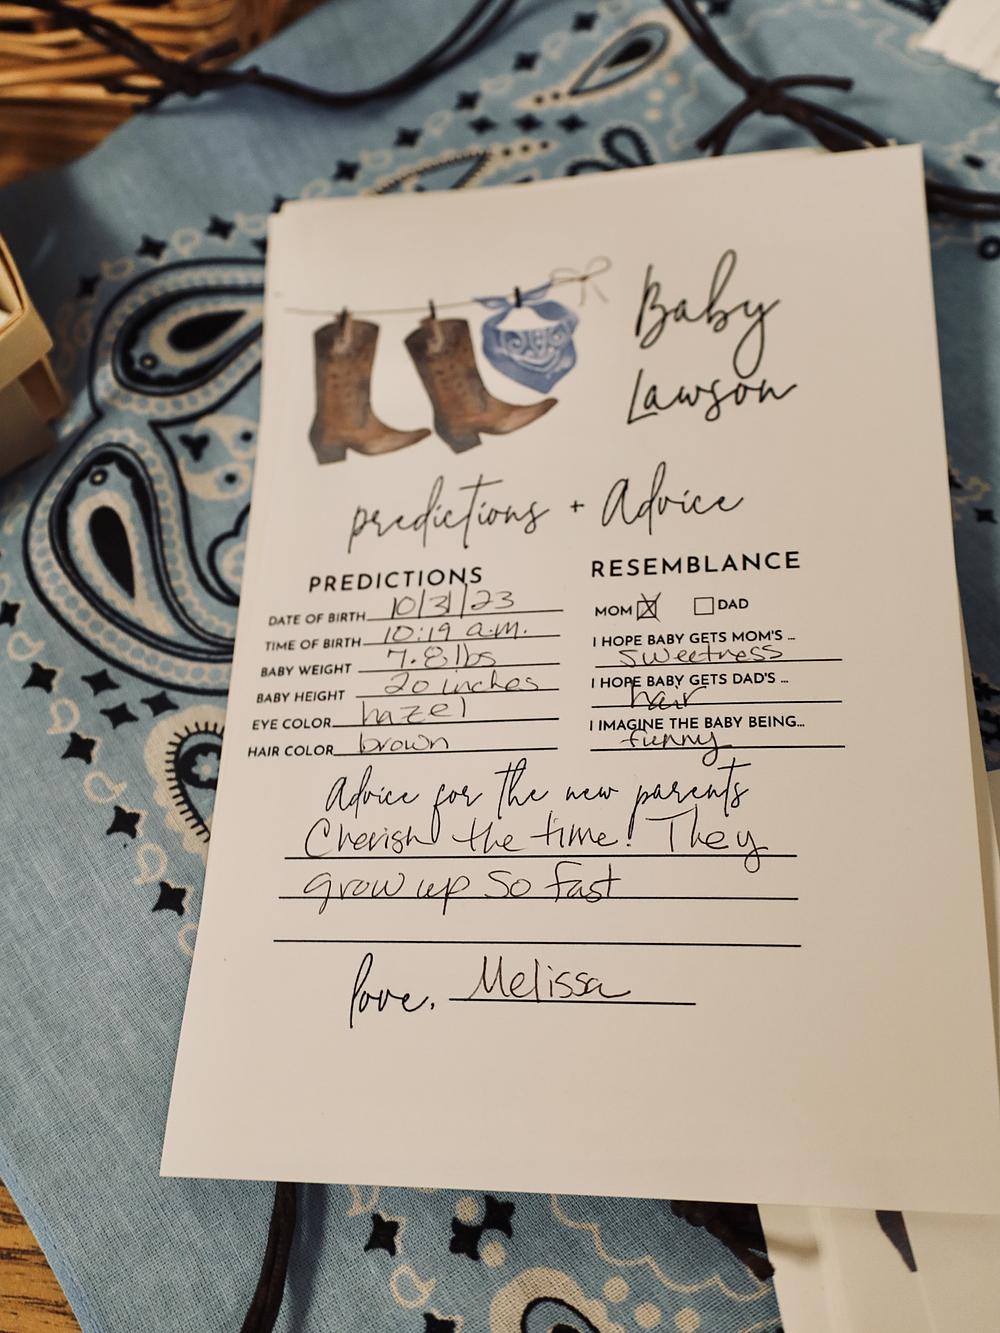 Baby
Lawson
predictions + Advice
PREDICTIONS
DATE OF BIRTH 10/31/23
TIME OF BIRTH 10:19 a.m.
BABY WEIGHT 7.8 lbs
BABY HEIGHT 20 inches
EYE COLOR hazel
HAIR COLOR brown
RESEMBLANCE
MOM ☒ ☐ DAD
I HOPE BABY GETS MOM'S ...
sweetness
I HOPE BABY GETS DAD'S ...
hair
I IMAGINE THE BABY BEING...
funny
Advice for the new parents
Cherish the time! They
grow up so fast
love, Melissa